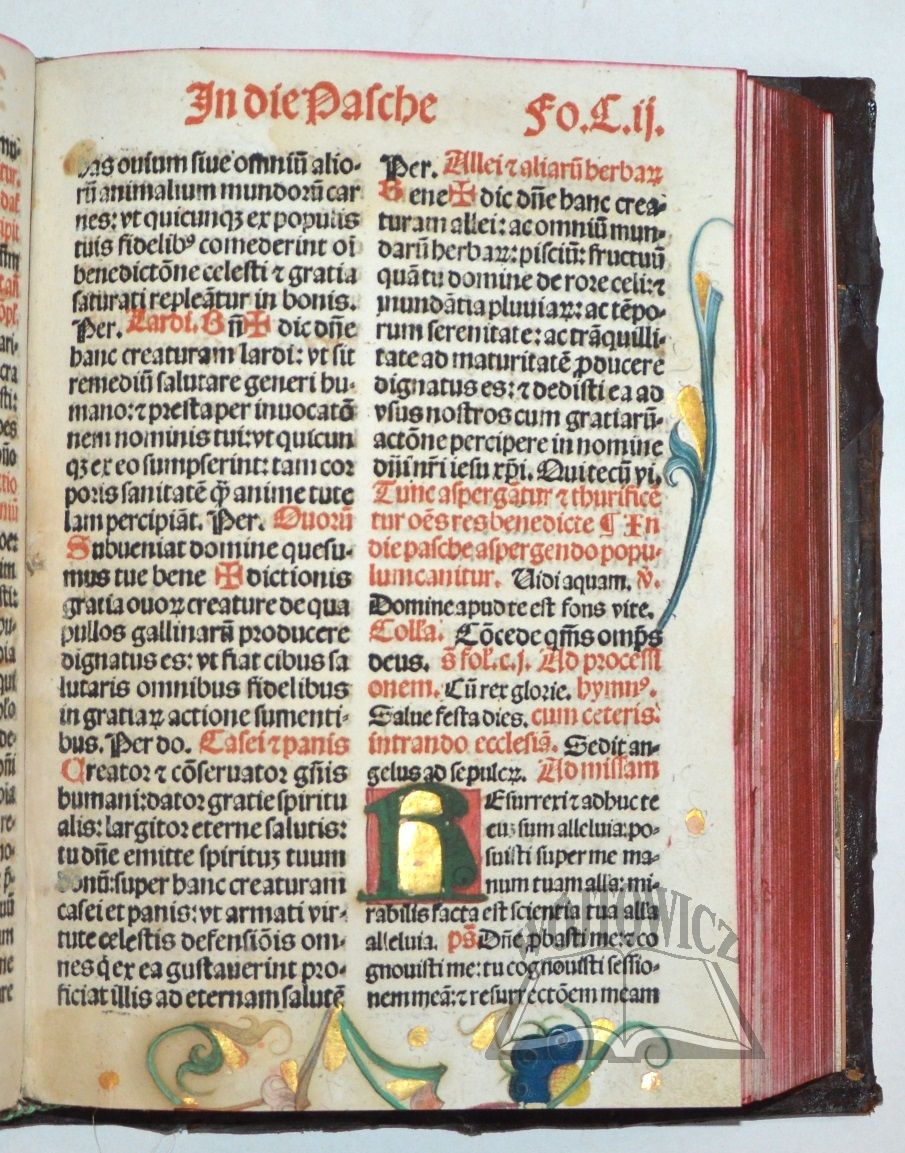 In die Pasche
Fo.C.ij.
bas ouium siue omniū alio-
rū animalium mundorū car
nes: vt quicunqꝫ ex populis
tuis fidelibꝰ comederint oī
benedictōne celesti ⁊ gratia
saturati repleātur in bonis.
Per. Lardi. B n̄ ✠ dic dn̄e
hanc creaturam lardi: vt sit
remediū salutare generi hu-
mano: ⁊ presta per inuocatō
nem nominis tui: vt quicun
qꝫ ex eo sumpserint: tam cor
poris sanitatē ꝙ̄ anime tute
lam percipiāt. Per. Ouorū
Subueniat domine quesu-
mus tue bene ✠ dictionis
gratia ouoꝝ creature de qua
pullos gallinarū producere
dignatus es: vt fiat cibus sa
lutaris omnibus fidelibus
in gratiaꝝ actione sumenti-
bus. Per do. Casei ⁊ panis
Creator ⁊ cōseruator gn̄is
humani: dator gratie spiritu
alis: largitor eterne salutis:
tu dn̄e emitte spirituꝫ tuum
bonū: super hanc creaturam
casei et panis: vt armati vir-
tute celestis defensiōis om-
nes q̇ ex ea gustauerint pro-
ficiat illis ad eternam salutē
Per. Allei ⁊ aliarū herbaꝝ
Bene ✠ dic dn̄e hanc crea-
turam allei: ac omniū mun-
darū herbaꝝ: pisciū: fructuū
quā tu domine de rore celi: ⁊
inundātia pluuiaꝝ: ac tēpo-
rum serenitate: ac trāquilli-
tate ad maturitatē ꝓducere
dignatus es: ⁊ dedisti ea ad
vsus nostros cum gratiarū-
actōne percipere in nomine
dn̄i nr̄i iesu xp̄i. Qui tecū vi.
Tunc aspergātur ⁊ thurificē
tur oēs res benedicte ¶ In
die pasche aspergendo popu-
lum canitur. Uidi aquam. v̄.
Domine apud te est fons vite.
Colla. Cōcede qm̄s omp̄s
deus. s̄ fol. c.j. Ad processi
onem. Cū rex glorie. hymnꝰ.
Salue festa dies. cum ceteris:
intrando ecclesiā. Sedit an-
gelus ad sepulcꝝ. Ad missam
Resurrexi ⁊ adhuc te
cuꝫ sum alleluia: po-
suisti super me ma-
num tuam alla: mi-
rabilis facta est scientia tua alla
alleluia. ps̄ Dn̄e ꝓbasti me: ⁊ co
gnouisti me: tu cognouisti sessio-
nem meā: ⁊ resurrectōem meam
WÓJTOWICZ